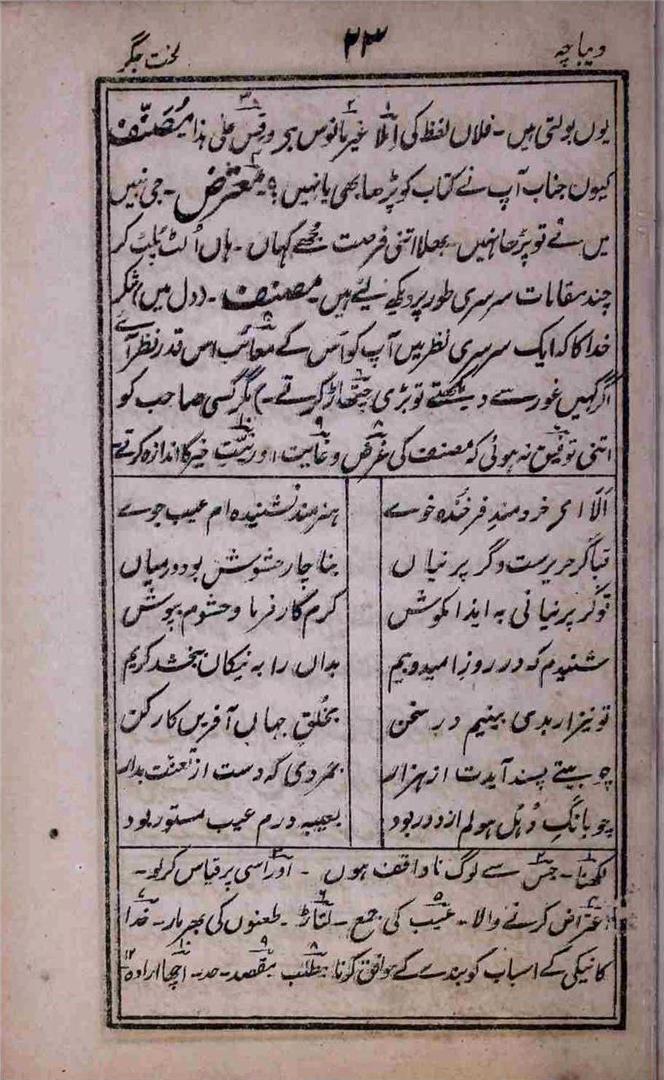 دیباچہ ۲۳ لخت جگر
یوں بولتی ہیں ۔ فلاں لفظ کی املا غیر مانوس ہجو و قس علی ہذا مُصَنّف
کیوں جناب آپ نے کتاب کو پڑھا بھی یا نہیں ؟ معترض ۔ جی نہیں
میں نے تو پڑھا نہیں ۔ بھلا اتنی فرصت مجھے کہاں ۔ ہاں اُلٹ پلٹ کر
چند مقامات سرسری طور پر دیکھ لیے ہیں مصنف ۔ (دل میں) شکر
خدا کا کہ ایک سرسری نظر میں آپ کو اس کے معائب اس قدر نظر آئے
اگر کہیں غور سے دیکھتے تو بڑی لتھاڑ کرتے ۔) مگر کسی صاحب کو
اتنی توفیق نہ ہوئی کہ مصنف کی غرض و غایت اور نیت خیر کا اندازہ کرتے
اَلا اے خردمند فرخندہ خوے ہنرمند نشنیدہ ام عیب جوے
قبا گر حریرست و گر پرنیاں بناچار حشوش بود درمیاں
تو گر پرنیانی بہ ایذا مکوش کرم کار فرما و حشوم بپوش
شنیدم کہ در روز امید و بیم بداں را بہ نیکاں ببخشد کریم
تو نیز ار بدی بینیم در سخن بخُلقِ جہاں آفریں کار کن
چو بیتے پسند آیدت از ہزار بمردی کہ دست از تعنت بدار
چو بانگِ دُہل ہولم از دور بود بعیبہ درم عیب مستور بود
لکھنا ۔ جس سے لوگ ناواقف ہوں ۔ اور اسی پر قیاس کر لو ۔
اعتراض کرنے والا ۔ عیب کی جمع ۔ لتاڑ ۔ طعنوں کی بھرمار ۔ خدا
کا نیکی کے اسباب کو بندے کے موافق کرنا ۔ مطلب ۔ مقصد ۔ حد ۔ اچھا ارادہ ۱۲